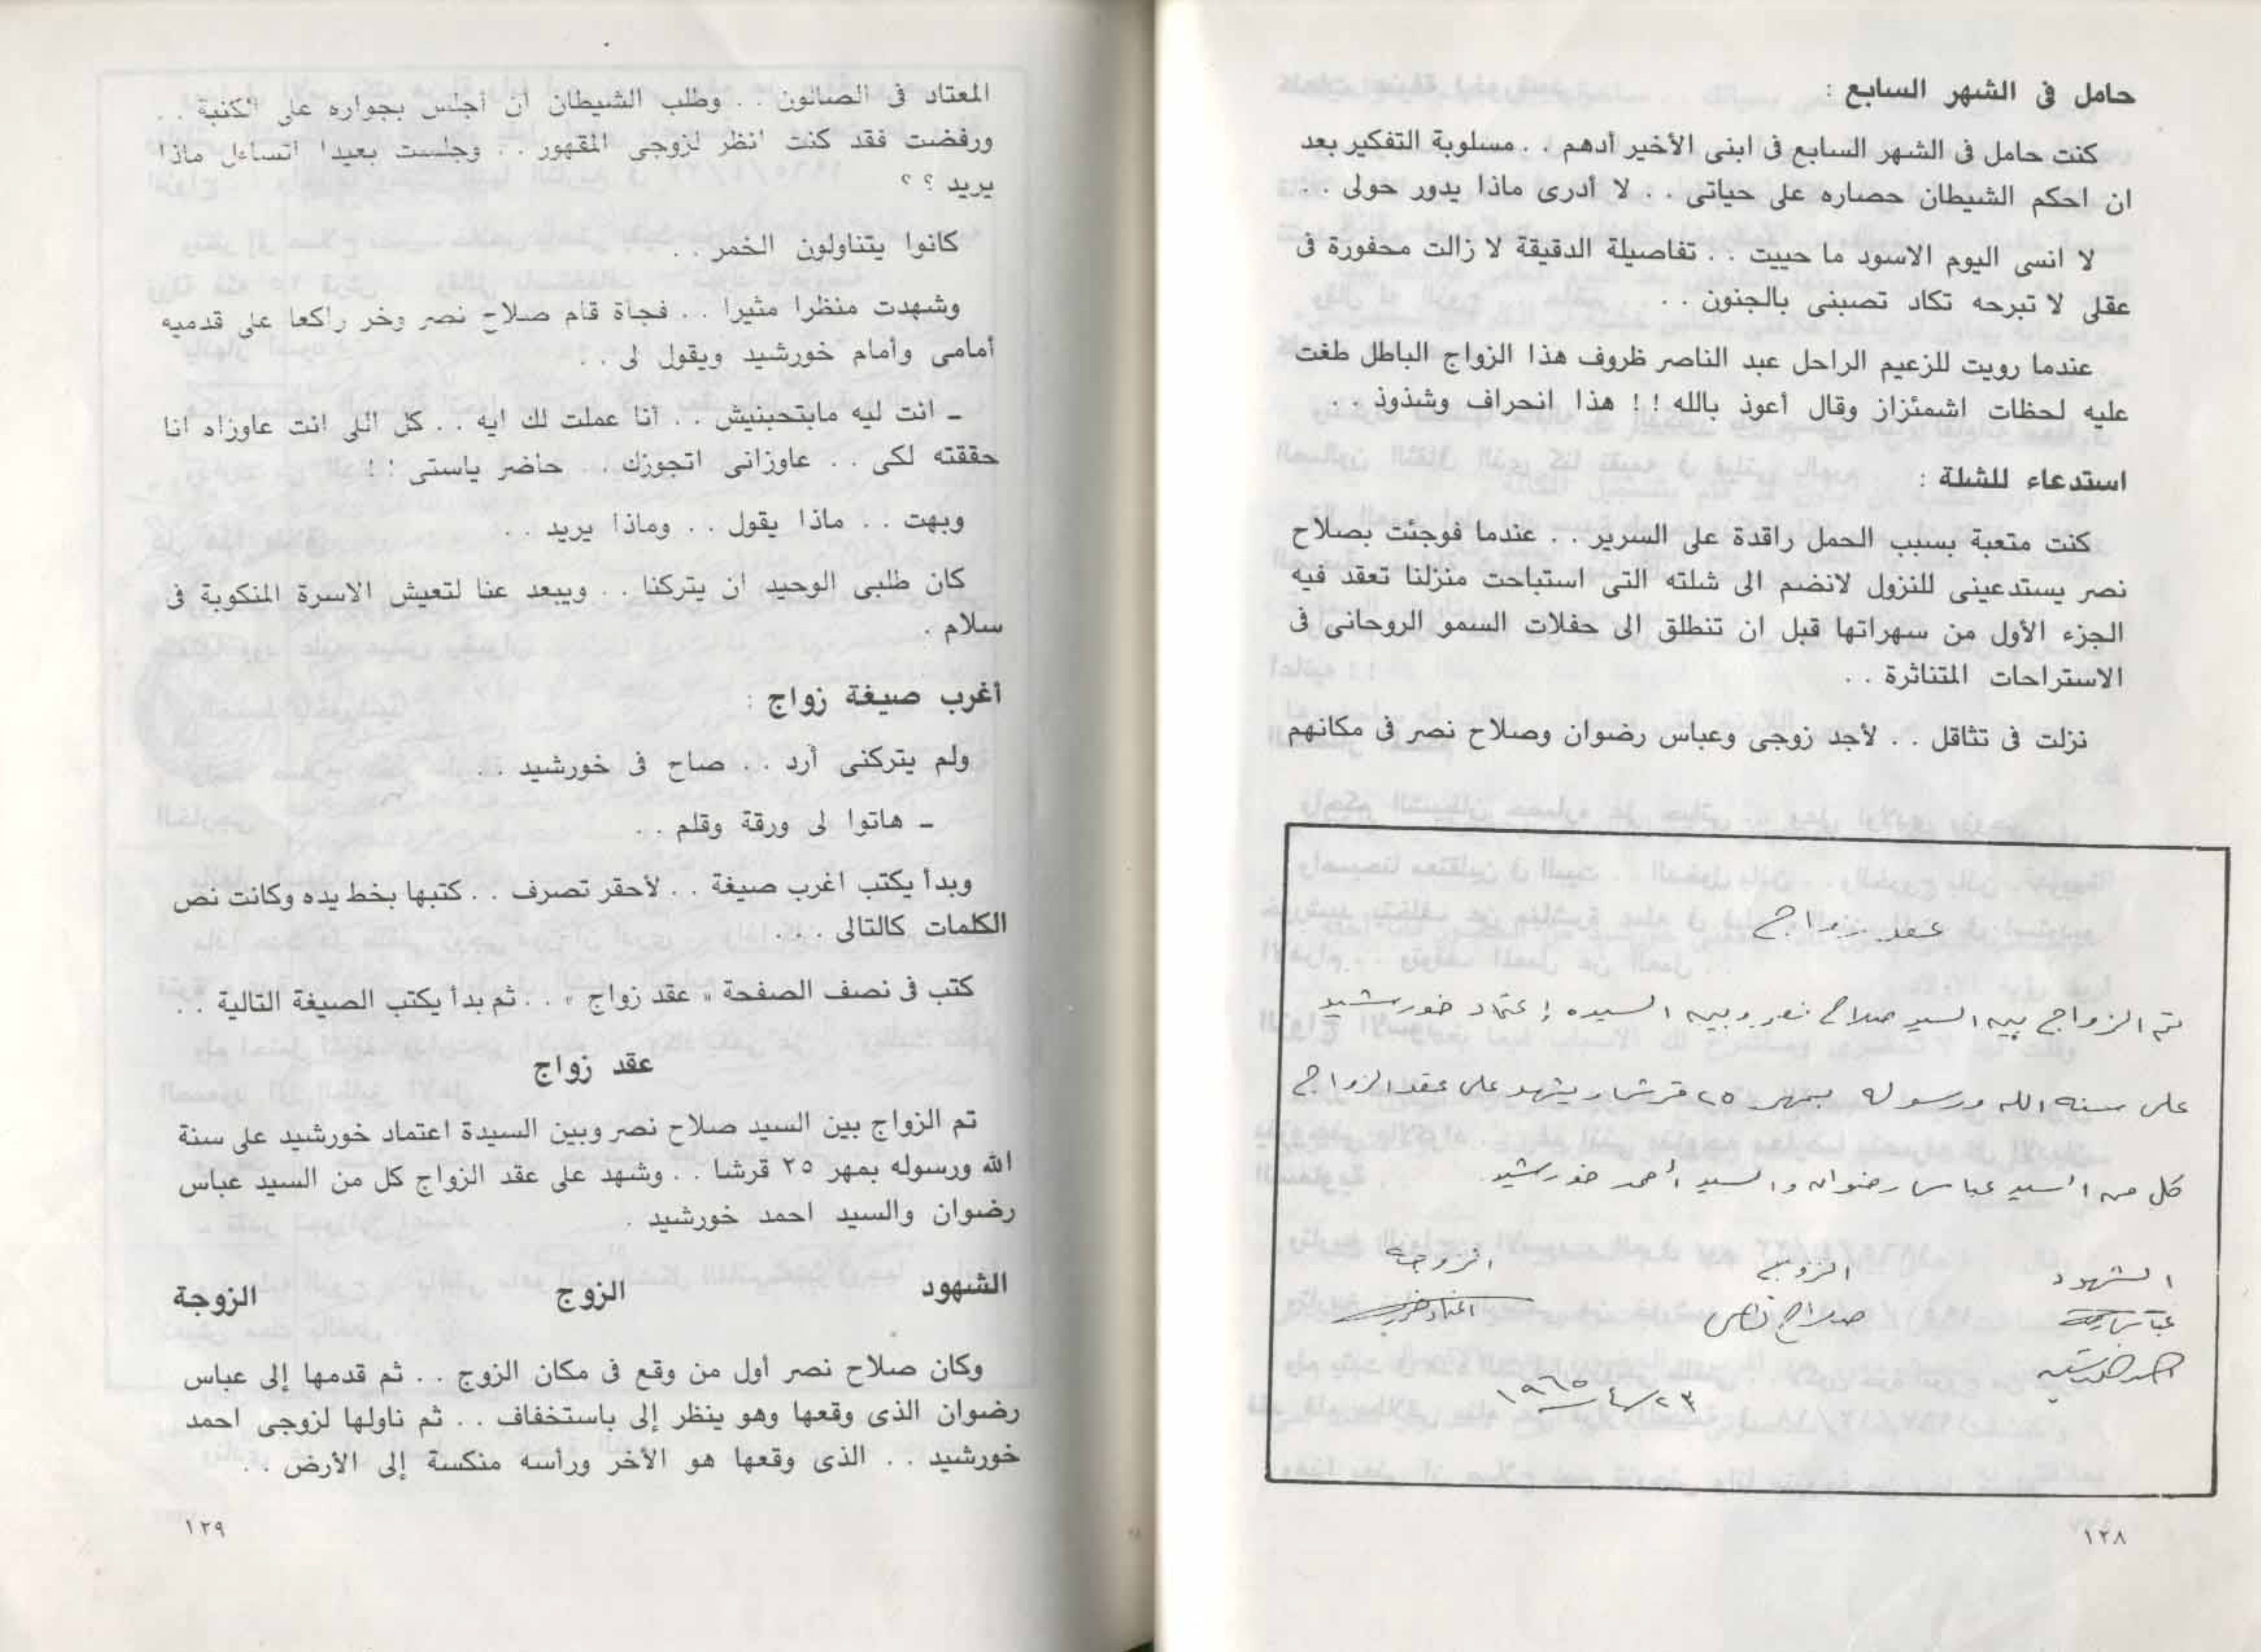 حامل فى الشهر السابع :
كنت حامل فى الشهر السابع فى ابنى الأخير أدهم . . مسلوبة التفكير بعد
ان احكم الشيطان حصاره على حياتى . . لا أدرى ماذا يدور حولى . .
لا انسى اليوم الاسود ما حييت . . تفاصيلة الدقيقة لا زالت محفورة فى
عقلى لا تبرحه تكاد تصبنى بالجنون . .
عندما رويت للزعيم الراحل عبد الناصر ظروف هذا الزواج الباطل طغت
عليه لحظات اشمئزاز وقال أعوذ بالله ! ! هذا انحراف وشذوذ . .
استدعاء للشلة :
كنت متعبة بسبب الحمل راقدة على السرير . . عندما فوجئت بصلاح
نصر يستدعينى للنزول لانضم الى شلته التى استباحت منزلنا تعقد فيه
الجزء الأول من سهراتها قبل ان تنطلق الى حفلات السمو الروحانى فى
الاستراحات المتناثرة . .
نزلت فى تثاقل . . لأجد زوجى وعباس رضوان وصلاح نصر فى مكانهم
عقد زواج
تم الزواج بين السيد صلاح نصر وبين السيده إعتماد خورشيد
على سنة الله ورسوله بمهر ٢٥ قرشا ويشهد على عقد الزواج
كل من السيد عباس رضوان والسيد أحمد خورشيد
الشهود الزوج الزوجة
صلاح نصر
٢٣/٤/١٩٦٥
١٢٨
المعتاد فى الصالون . . وطلب الشيطان ان أجلس بجواره على الكنبة . .
ورفضت فقد كنت انظر لزوجى المقهور . . وجلست بعيدا اتساءل ماذا
يريد ؟ ؟
كانوا يتناولون الخمر . .
وشهدت منظرا مثيرا . . فجأة قام صلاح نصر وخر راكعا على قدميه
أمامى وأمام خورشيد ويقول لى . .
ـ انت ليه مابتحبنيش . . أنا عملت لك ايه . . كل اللى انت عاوزاه انا
حققته لكى . . عاوزانى اتجوزك . . حاضر ياستى ! !
وبهت . . ماذا يقول . . وماذا يريد . .
كان طلبى الوحيد ان يتركنا . . ويبعد عنا لتعيش الاسرة المنكوبة فى
سلام .
أغرب صيغة زواج :
ولم يتركنى أرد . . صاح فى خورشيد . .
ـ هاتوا لى ورقة وقلم . .
وبدأ يكتب اغرب صيغة . . لأحقر تصرف . . كتبها بخط يده وكانت نص
الكلمات كالتالى . . .
كتب فى نصف الصفحة « عقد زواج » . . ثم بدأ يكتب الصيغة التالية . .
عقد زواج
تم الزواج بين السيد صلاح نصر وبين السيدة اعتماد خورشيد على سنة
الله ورسوله بمهر ٢٥ قرشا . . وشهد على عقد الزواج كل من السيد عباس
رضوان والسيد احمد خورشيد .
الشهود الزوج الزوجة
وكان صلاح نصر أول من وقع فى مكان الزوج . . ثم قدمها إلى عباس
رضوان الذى وقعها وهو ينظر إلى باستخفاف . . ثم ناولها لزوجى احمد
خورشيد . . الذى وقعها هو الأخر ورأسه منكسة إلى الأرض . .
١٢٩